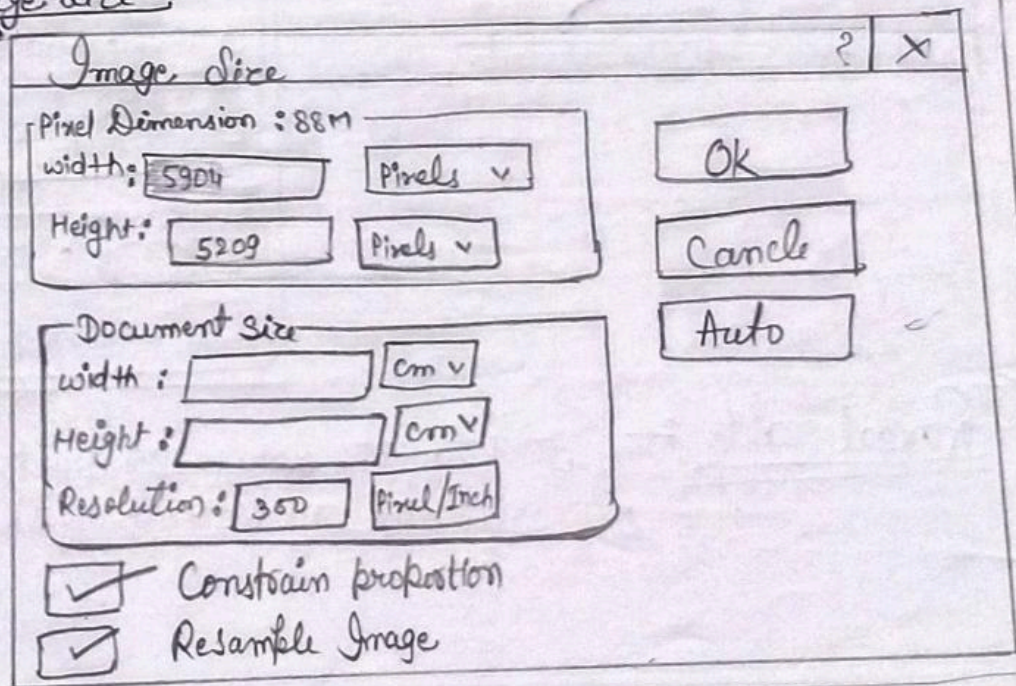 Image Size ? X
Pixel Dimension : 88M
width: 5904 Pixels v
Height: 5209 Pixels v
Ok
Cancle
Auto
Document Size
width : cm v
Height : cm v
Resolution: 300 Pixel/Inch
Constrain proportion
Resample Image